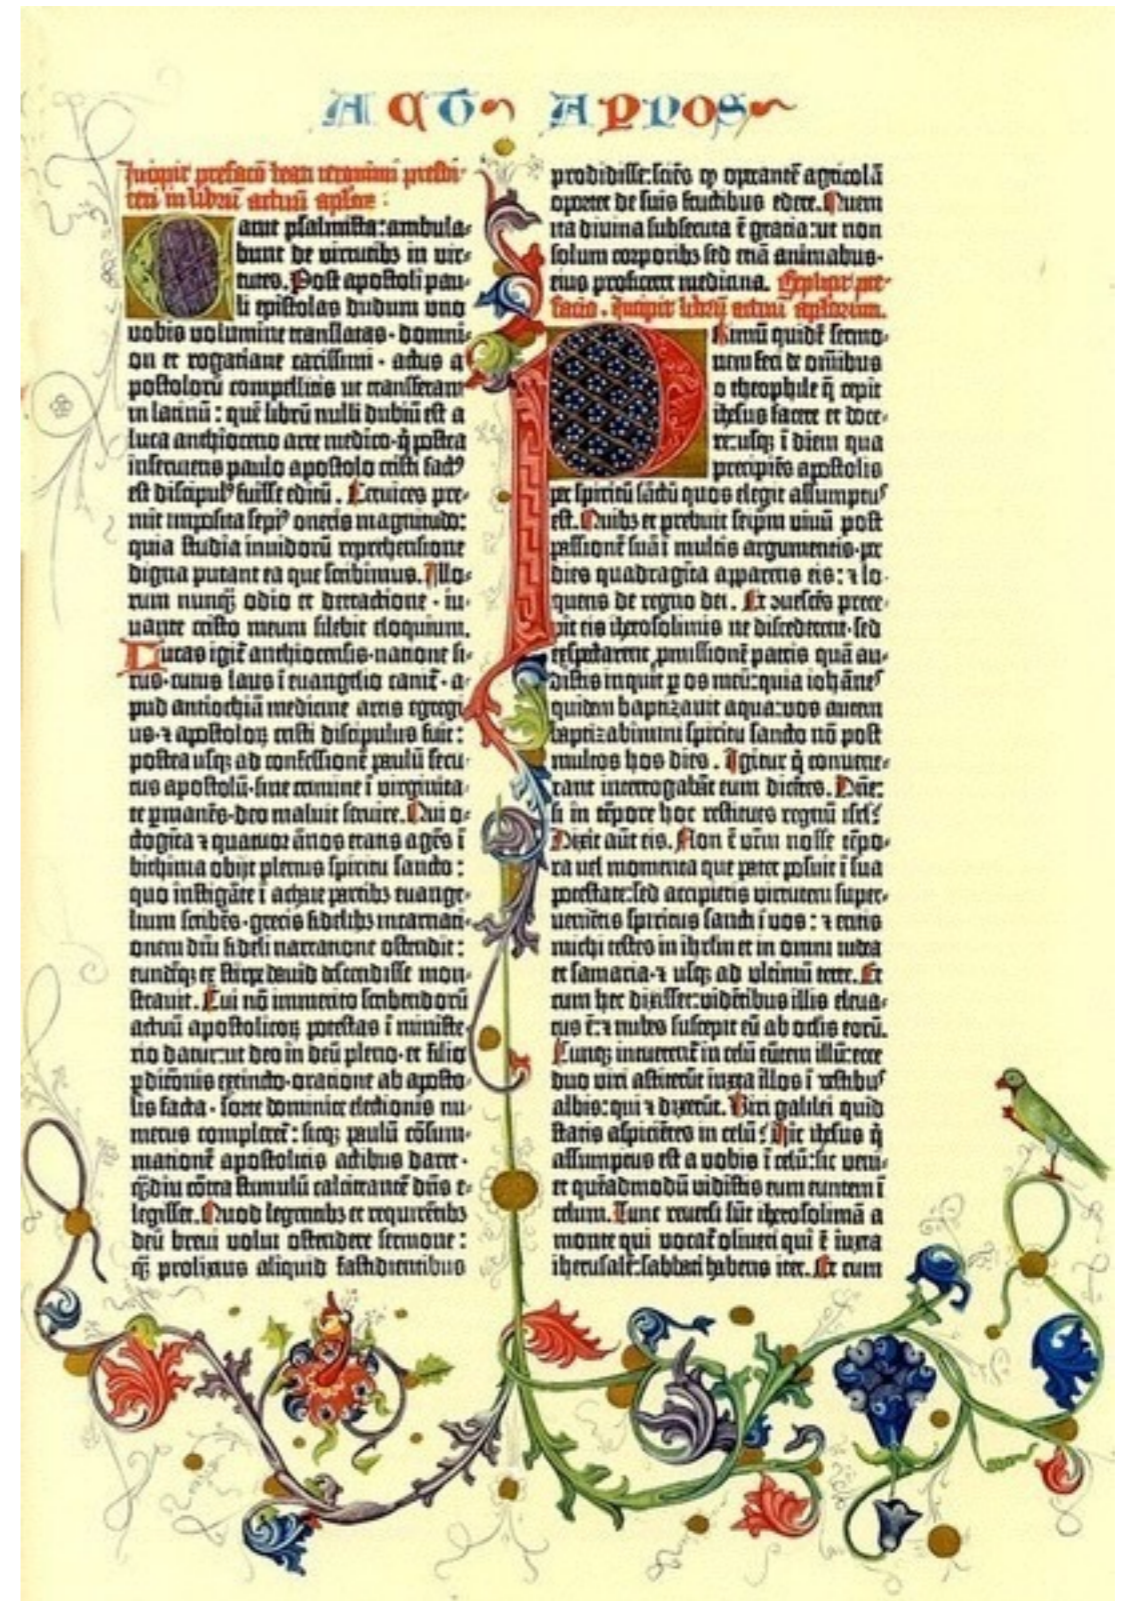 ACTꝰ APLOS
Incipit prefacō beati ieronimi presbi-
teri in librū actuū aplōꝝ:
Canit psalmista: ambula-
bunt de virtutibꝫ in vir-
tutes. Post apostoli pau-
li epistolas dudum uno
vobis volumine translatas· domni-
on et rogatiane carissimi· actus a
postolorū compellitis ut transferam
in latinū: quē librū nulli dubiū est a
luca anthioceno arte medico·q̄ postea
inserviens paulo apostolo cristi factꝰ
est discipulꝰ fuisse editū. Cervices pre-
mit imposita sepiꝰ oneris magnitudo:
quia studia invidorū reprehensione
digna putant ea que scribimus. Illo-
rum nunqꝫ odio et detractione· iu-
vante cristo meum silebit eloquium.
Lucas igit̄ anthiocensis·natione si-
rus·cuius laus ī euangelio canit̄·a-
pud antiochiā medicine artis egregi
us·⁊ apostoloꝝ cristi discipulus fuit:
postea usqꝫ ad confessionē paulū secu-
tus apostolū·sine crimine ī virginita-
te ꝑmanēs·deo maluit servire. Qui o-
ctogīta ⁊ quatuor ānos etatis agēs ī
bithinia obijt plenus spiritu sancto:
quo īstigāte ī achaie partibꝫ euange-
lium scribēs·grecis fidelibꝫ incarnati-
onem dn̄i fideli narratione ostendit:
eundēqꝫ ex stirpe david descendisse mon-
stravit. Cui nō immerito scribendorū
actuū apostolicoꝝ potestas ī ministe-
rio datur:ut deo in deū pleno·et filio
ꝑdiciōnis extincto·oratione ab aposto-
lis facta· sorte dominice electionis nu-
merus compleret̄: sicqꝫ paulū cōsum-
mationē apostolicis actibus daret·
quē diu cōtra stimulū calcitrantē dn̄s e-
legisset. Quod legentibꝫ et requirētibꝫ
deū brevi volui ostendere sermone:
qꝫ prolixius aliquid fastidientibus
prodidisse:sciēs qꝫ operantē agricolā
oportet de suis fructibus edere. Quem
ita divina subsecuta ē gratia:ut non
solum corporibꝫ sed etiā animabus·
eius proficeret medicina. Explicit pre-
facio. Incipit librū actuū apl̄orum.
Primū quidē sermo-
nem feci de omībus
o theophile q̄ cepit
ihesus facere et doce-
re:usqꝫ ī diem qua
precipiēs apostolis
per spiritū sāctū quos elegit assumptuꝰ
est. Quibꝫ et prebuit seip̄m vivū post
passionē suā ī multis argumentis·per
dies quadragīta apparens eis: ⁊ lo-
quens de regno dei. Et vescēs prece-
pit eis iherosolimis ne discederent·sed
expectarent ꝓmissionē patris quā au-
distis inquit ꝑ os meū:quia iohānes
quidem baptizavit aqua:vos autem
baptizabimini spiritu sancto nō post
multos hos dies. Igitur q̄ convene-
rant interrogabāt eum dicētes. Dn̄e:
si in tēpore hoc restitues regnū isr̄l?
Dixit aūt eis. Non ē vr̄m nosse tēpo-
ra vel momenta que pater posuit ī sua
potestate:sed accipietis virtutem super-
venientis spiritus sancti ī vos: ⁊ eritis
michi testes in ihrl̄m et in omni iudea
et samaria·⁊ usqꝫ ad ultimū terre. Et
cum hec dixisset:vidētibus illis eleva-
tus ē:⁊ nubes suscepit eū ab oculis eorū.
Cunqꝫ intuerent̄ in celū eūtem illū:ecce
duo viri astiterūt iuxta illos ī vestibuꝰ
albis:qui ⁊ dixerūt. Viri galilei quid
statis aspiciētes in celū? Hic ihesus q̄
assumptus est a vobis ī celū:sic veni-
et quēadmodū vidistis eum euntem ī
celum. Tunc reversi sūt iherosolimā a
monte qui vocat̄ oliveti qui ē iuxta
iherusalē:sabbati habens iter. Et cum